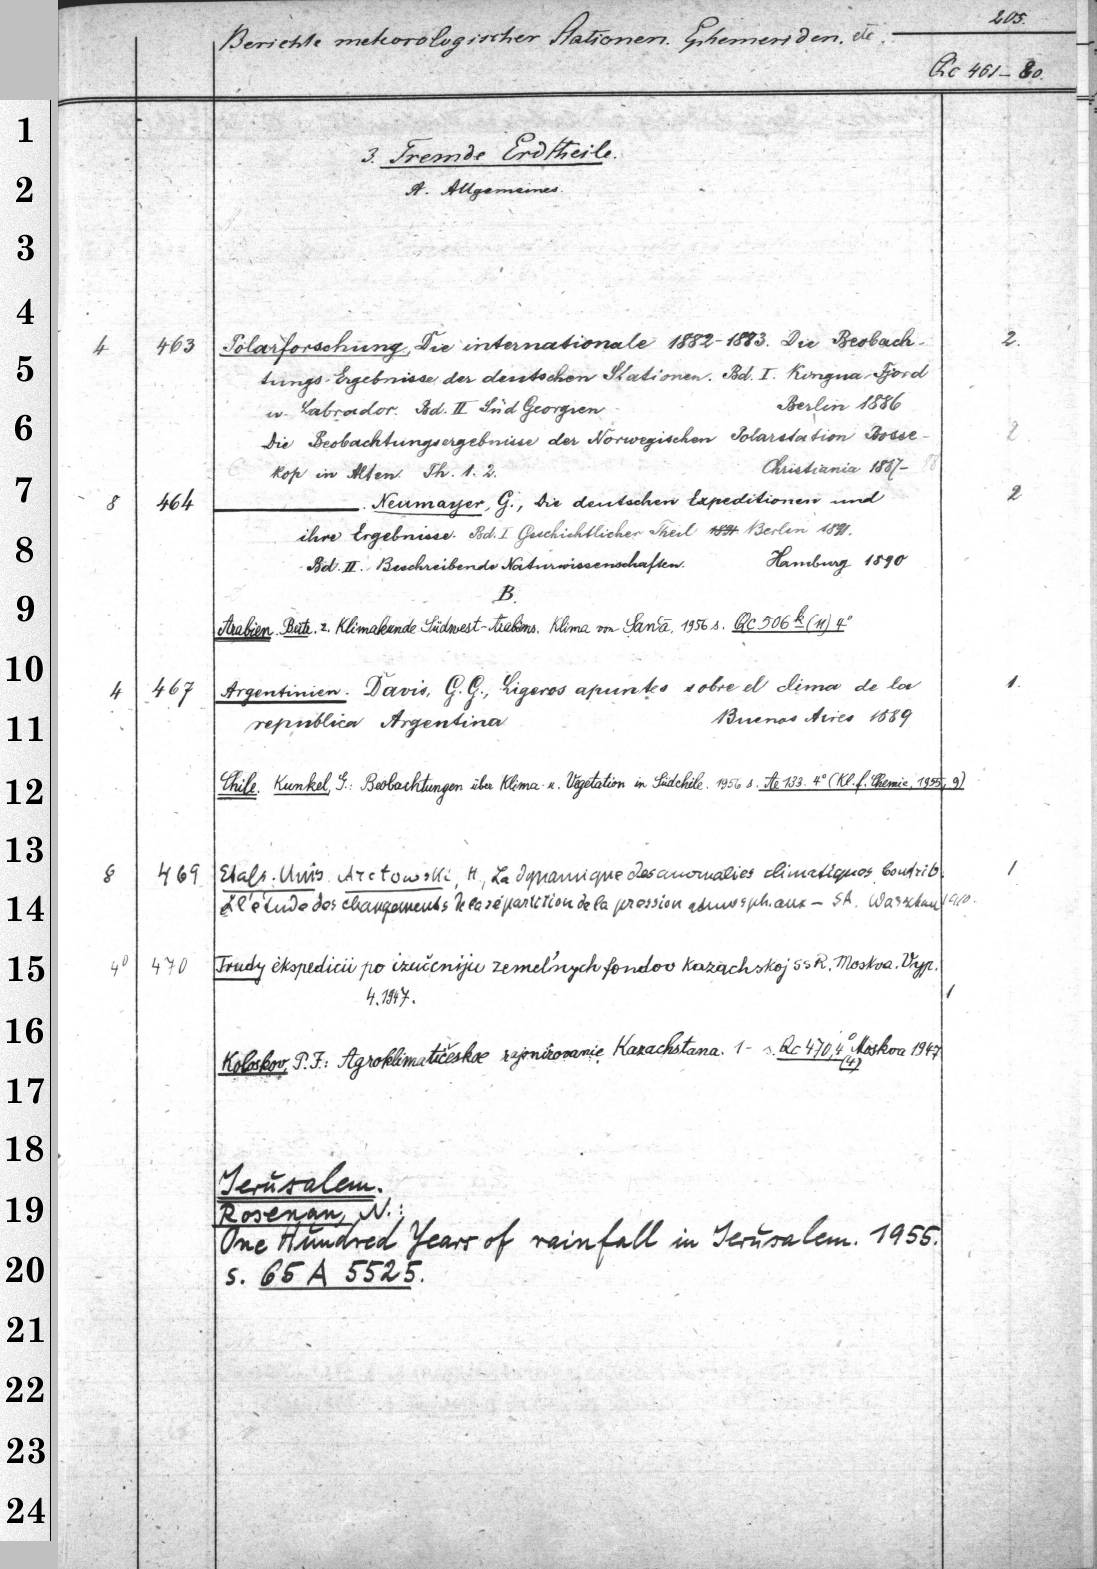 205.
Berichte meteorologischer Stationen. Ephemeriden. etc.
Qc 461–80.
1
3. Fremde Erdtheile.
2
A. Allgemeines.
3
4
4 463 Polarforschung, Die internationale 1882–1883. Die Beobach- 2.
5
tungs-Ergebnisse der deutschen Stationen. Bd. I. Kingua-Fjord
u. Labrador. Bd. II Süd Georgien Berlin 1886
6
Die Beobachtungsergebnisse der Norwegischen Polarstation Bosse- 2
kop in Alten Th. 1. 2. Christiania 1887–88
7
8 464 . Neumayer, G., Die deutschen Expeditionen und 2
ihre Ergebnisse. Bd. I Geschichtlicher Theil 1891 Berlin 1891.
8
Bd. II. Beschreibende Naturwissenschaften. Hamburg 1890
B.
9
Arabien. Beitr. z. Klimakunde Südwest-Arabiens. Klima von San'ā. 1956 s. Qc 506 k (11) 4°
10
4 467 Argentinien. Davis, G. G., Ligeros apuntes sobre el clima de la 1.
11
republica Argentina Buenos Aires 1889
12
Chile. Kunkel, G.: Beobachtungen über Klima u. Vegetation in Südchile. 1956 s. Ae 133. 4° (Kl. f. Chemie, 1955, 9)
13
8 469 Etats-Unis. Arctowski, H., La dynamique des anomalies climatiques. Contrib. 1
14
à l'étude des changements de la répartition de la pression atmosph. aux – SA. Warschau 1910.
15
4° 470 Trudy ėkspedicii po izučeniju zemel'nych fondov kazachskoj SSR. Moskva. Vyp.
4. 1947. 1
16
Koloskov, P. F.: Agroklimatičeskoe rajonirovanie Kazachstana. 1– s. Qc 470, 4° Moskva 1947
(4)
17
18
Jerusalem.
19
Rosenan, N.:
One Hundred Years of rainfall in Jerusalem. 1955.
20
s. 65 A 5525.
21
22
23
24